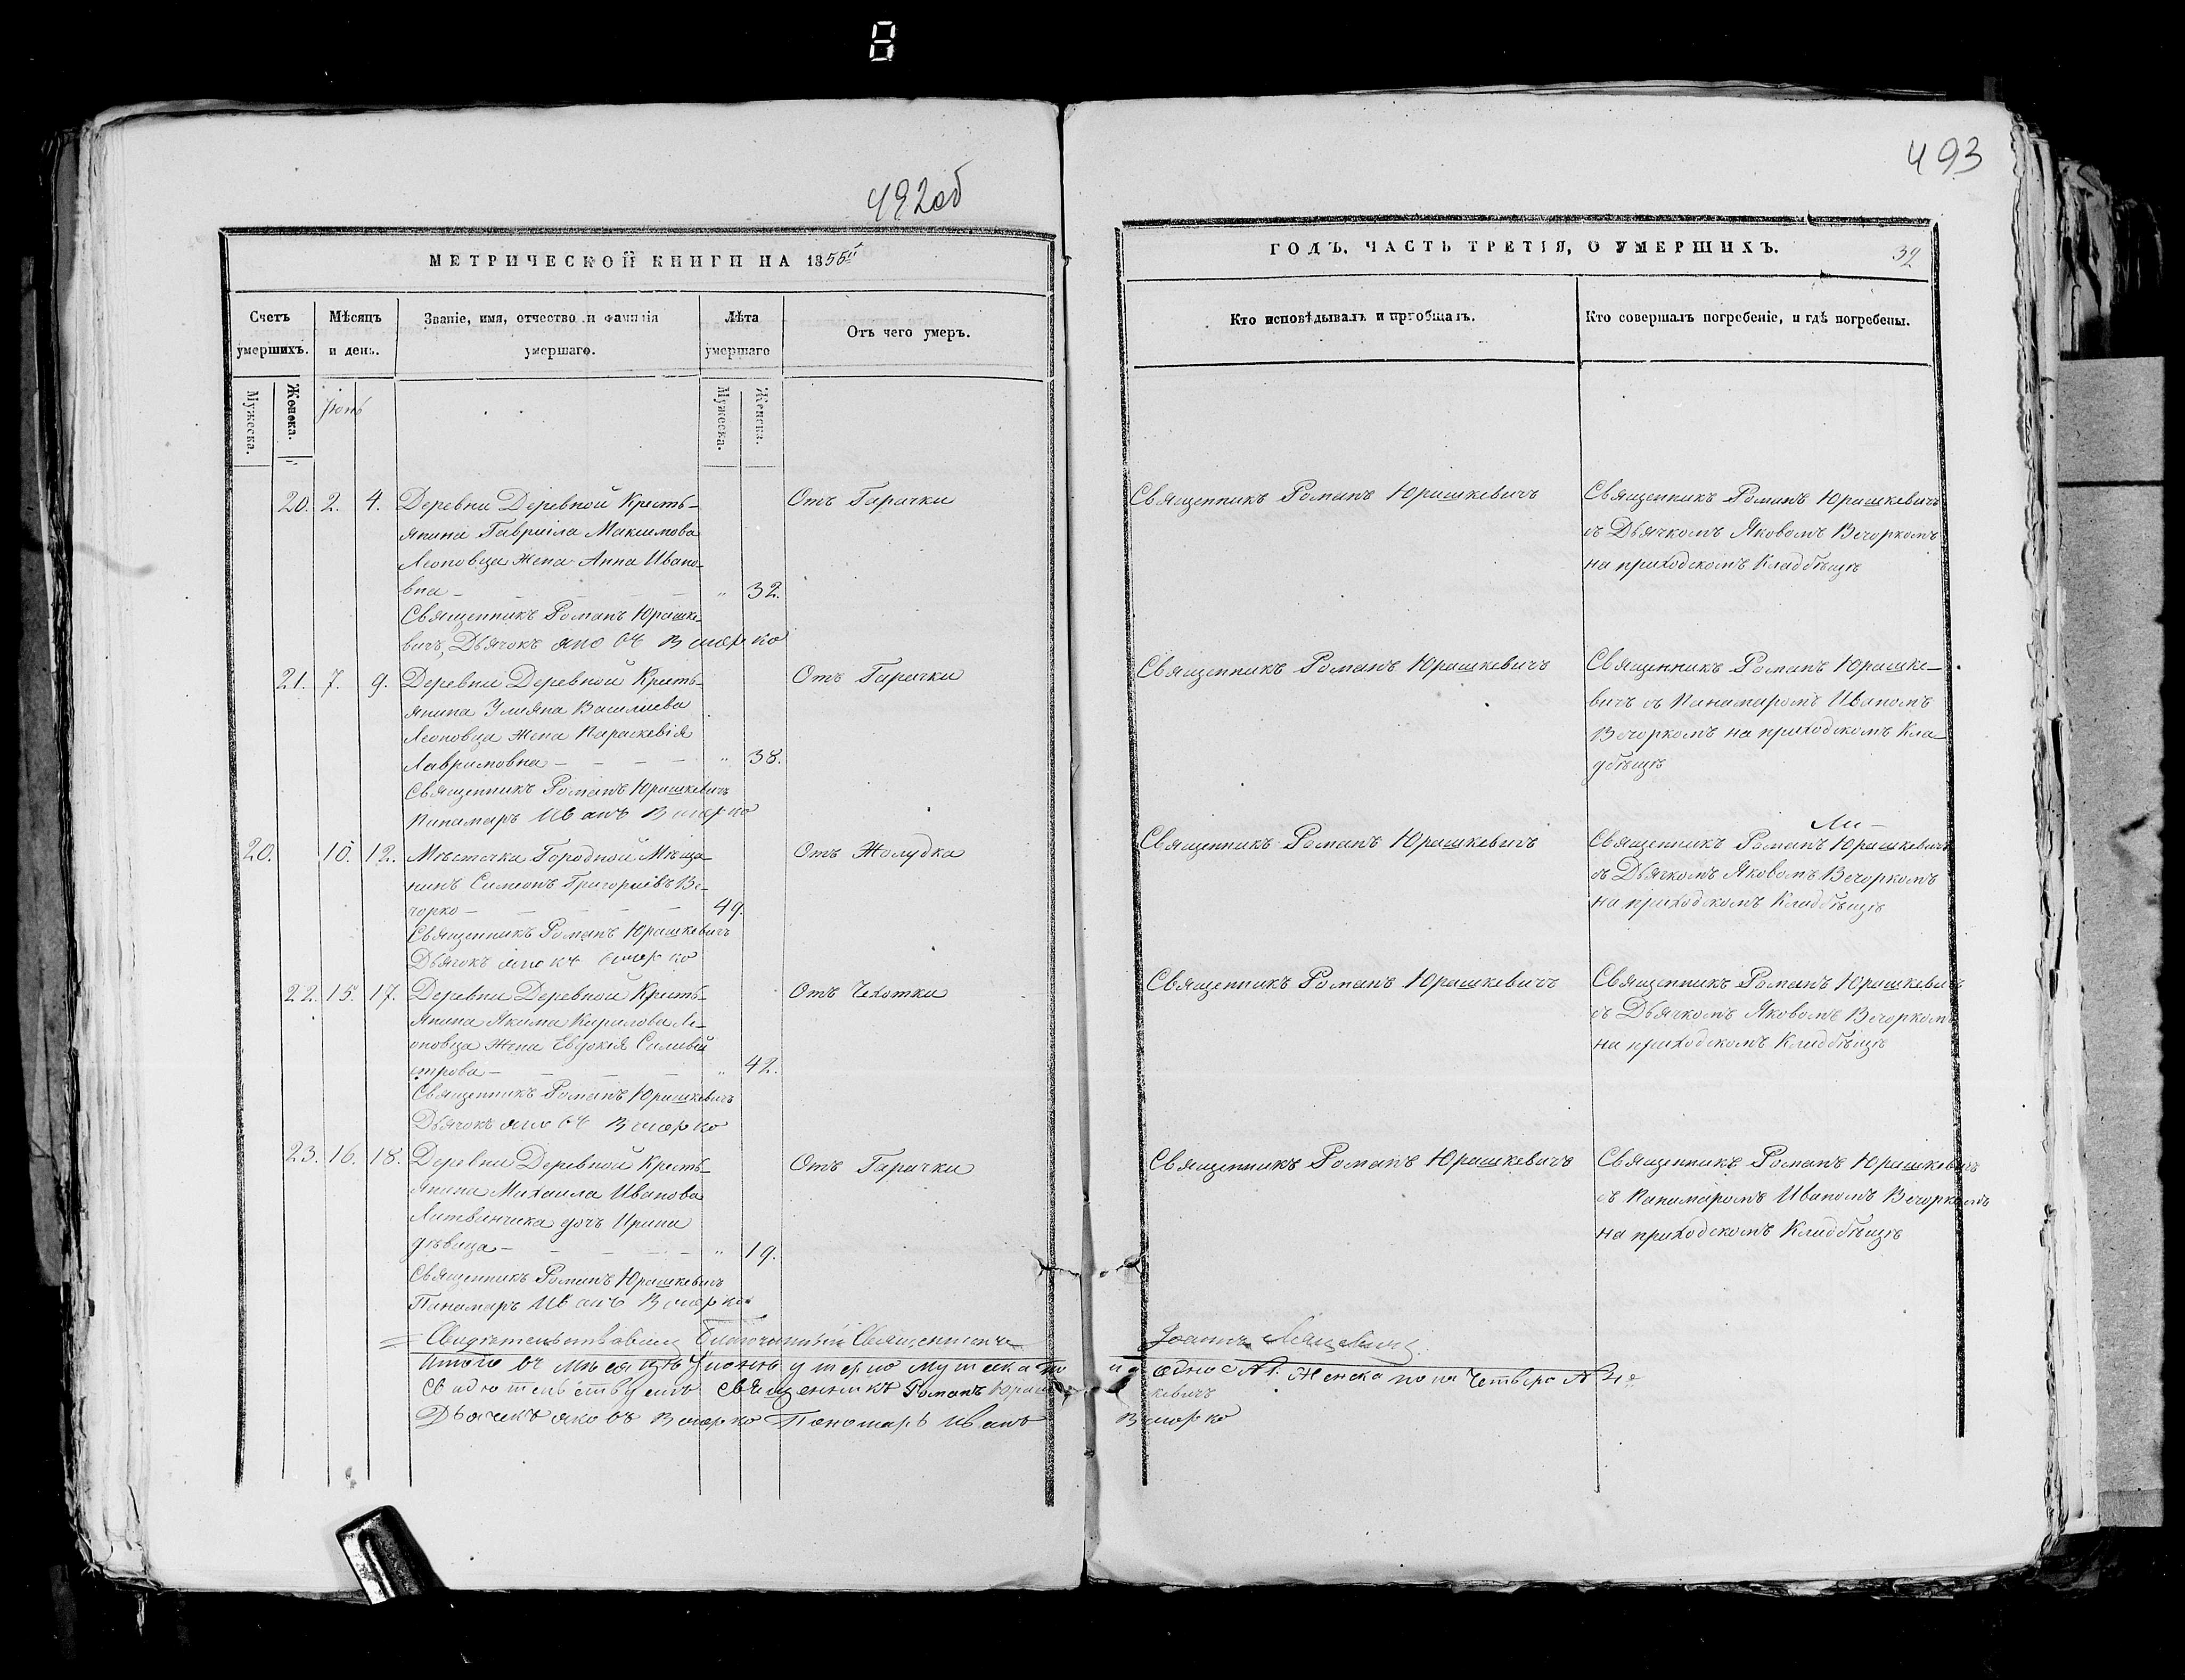 8
492об
МЕТРИЧЕСКОЙ КНИГИ НА 1855й
Счетъ умершихъ.
Мужеска.
Женска.
Мѣсяцъ и день.
Званіе, имя, отчество и фамилія умершаго.
Лѣта умершаго
Мужеска.
Женска.
Отъ чего умеръ.
Іюнь
20. 2. 4. Деревни Деревной Кресть-
янина Гавріила Максимова
Леоновца Жена Анна Ивано-
вна - - - - - „ 32.
Отъ Гарачки
Священникъ Романъ Юрашке-
вичъ, Дьячокъ Яковъ Вечорко
21. 7. 9. Деревни Деревной Кресть-
янина Уліяна Васильева
Леоновца Жена Параскевія
Лавримовна - - - - „ 38.
Отъ Гарачки
Священникъ Романъ Юрашкевичъ
Панамаръ Иванъ Вечорко
20. 10. 12. Мѣстечка Городной Мѣща-
нинъ Симеонъ Григоріевъ Ве-
чорко - - - - - 49.
Отъ Жолудка
Священникъ Романъ Юрашкевичъ
Дьячокъ Яковъ Вечорко
22. 15. 17. Деревни Деревной Кресть-
янина Якима Кирилова Ле-
оновца Жена Евдокія Силивей
строва - - - - - „ 42.
Отъ Чехотки
Священникъ Романъ Юрашкевичъ
Дьячокъ Яковъ Вечорко
23. 16. 18. Деревни Деревной Кресть-
янина Михаила Иванова
Литвинчика дочь Ирина
дѣвица - - - - - „ 19.
Отъ Гарачки
Священникъ Романъ Юрашкевичъ
Панамаръ Иванъ Вечорко
Свидѣтельствовалъ Благочинный Священникъ
Итого въ мѣсяцѣ Іюнѣ умерло мужеска по
Свидѣтельствуемъ Священникъ Романъ Юраш
Дьячекъ Яковъ Вечорко Пономарь Иванъ
493
ГОДЪ, ЧАСТЬ ТРЕТІЯ, О УМЕРШИХЪ.
32
Кто исповѣдывалъ и пріобщалъ.
Кто совершалъ погребеніе, и гдѣ погребены.
Священникъ Романъ Юрашкевичъ
Священникъ Романъ Юрашкевичъ
съ Дьячкомъ Яковомъ Вечоркомъ
на приходскомъ Кладбѣщѣ
Священникъ Романъ Юрашкевичъ
Священникъ Романъ Юрашке-
вичъ съ Панамаромъ Иваномъ
Вечоркомъ на приходскомъ Кла-
дбѣщѣ
Священникъ Романъ Юрашкевичъ
Священникъ Романъ Юрашкевичъ
съ Дьячкомъ Яковомъ Вечоркомъ
на приходскомъ Кладбѣщѣ
Священникъ Романъ Юрашкевичъ
Священникъ Романъ Юрашкевичъ
съ Дьячкомъ Яковомъ Вечоркомъ
на приходскомъ Кладбѣщѣ
Священникъ Романъ Юрашкевичъ
Священникъ Романъ Юрашкевичъ
съ Панамаромъ Иваномъ Вечоркомъ
на приходскомъ Кладбѣщѣ
Іоаннъ
одно №1. Женска пола Четверо № 4е
кевичъ
Вечорко